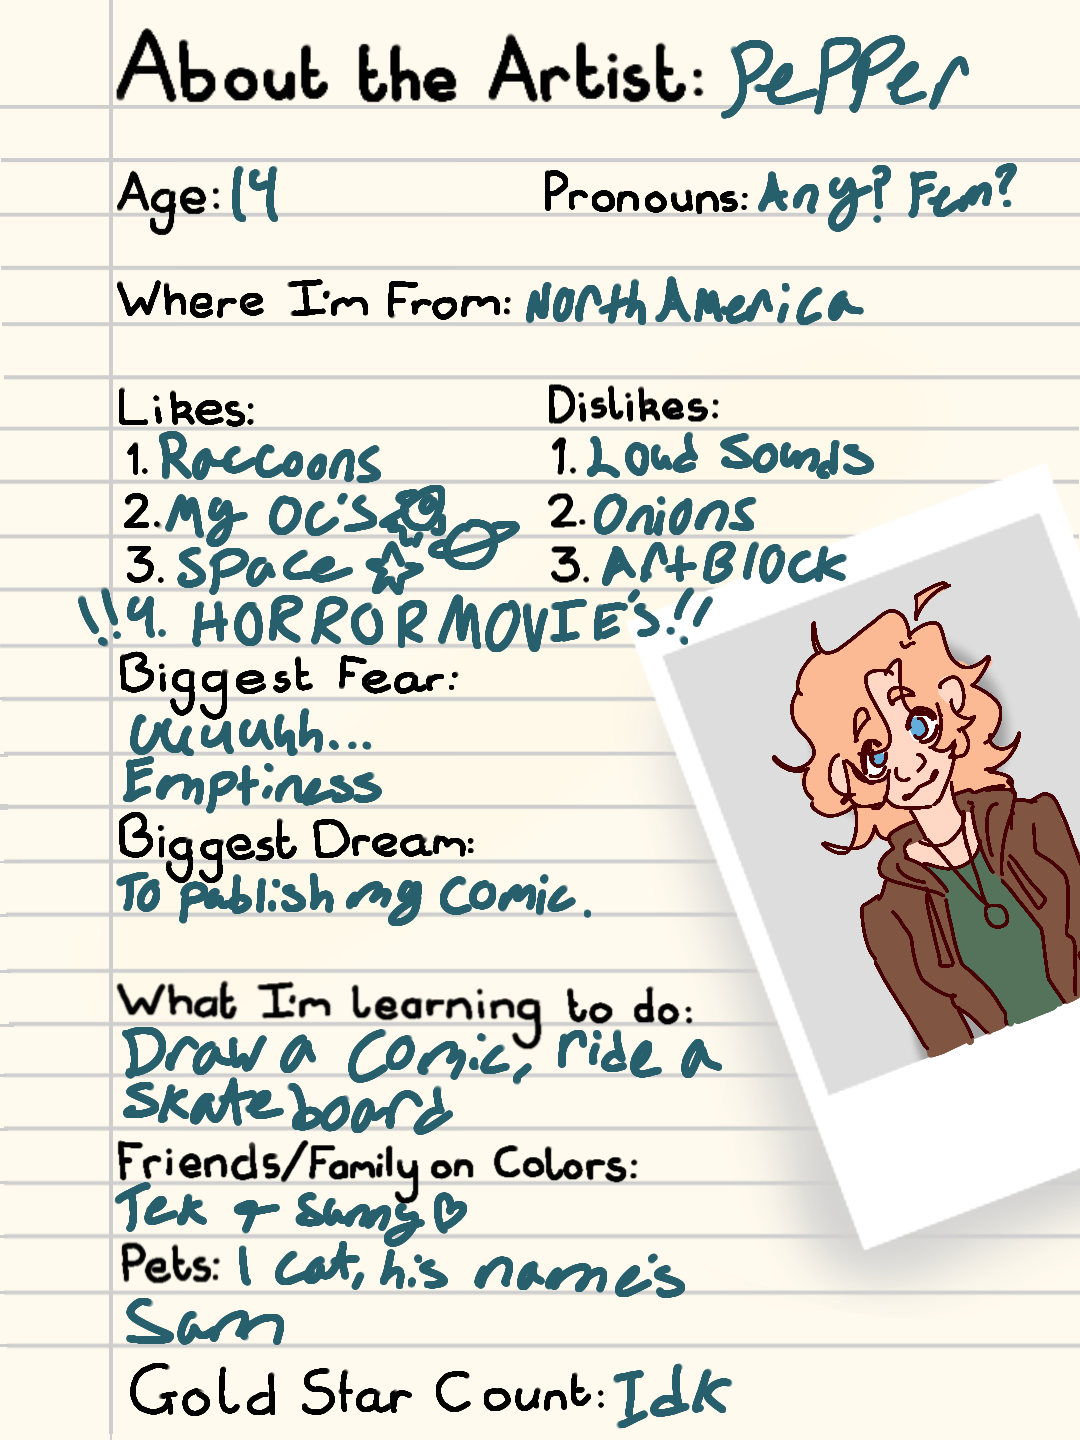 About the Artist: Pepper
Age: 14 Pronouns: Any? Fem?
Where I'm From: North America
Likes: Dislikes:
1. Raccoons 1. Loud Sounds
2. My OC's 2. Onions
3. Space 3. Art Block
!!4. HORROR MOVIE'S!!
Biggest Fear:
Uuuuhh...
Emptiness
Biggest Dream:
To publish my comic.
What I'm learning to do:
Draw a Comic, ride a
Skateboard
Friends/Family on Colors:
Tek + Sunny
Pets: 1 cat, his name's
Sam
Gold Star Count: Idk